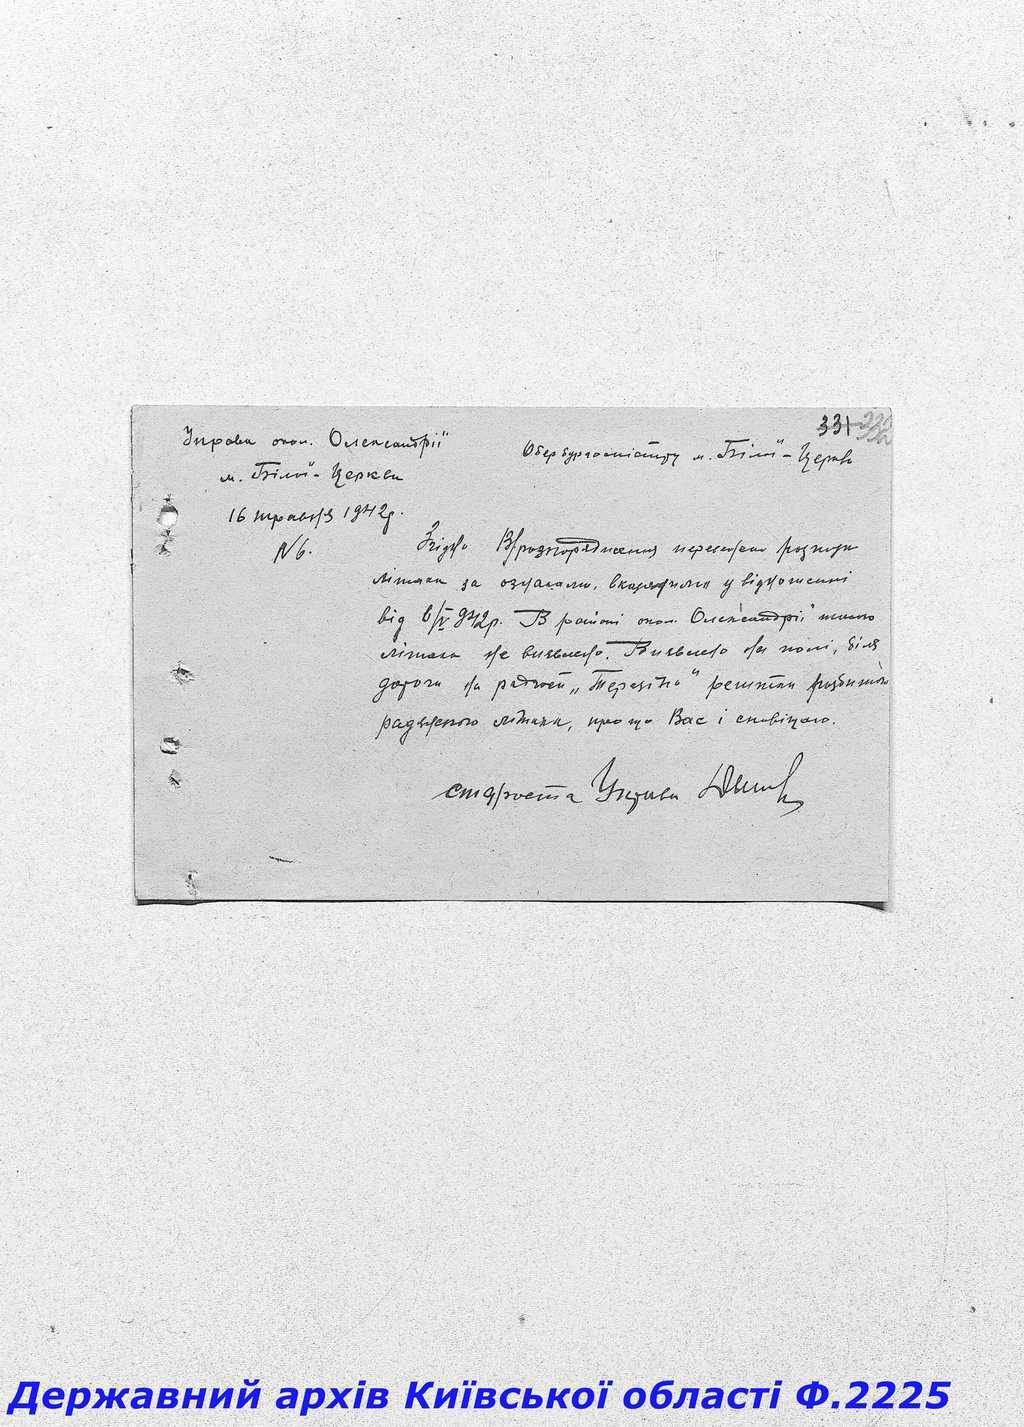 331
Управа окол. Олександрії
м. Білої-Церкви
16 травня 1942р.
N 6.
Обербургомістру м. Білої-Церкви
Згідно В/розпорядження переведено розшуки
літака за ознаками, вказаними у відношенні
від 6/V 942р. В районі окол. Олександрії такого
літака не виявлено. Виявлено на полі, біля
дороги на радгосп „Терезіно" рештки розбитого
радянського літака, про що Вас і сповіщаю.
староста Управи
Державний архів Київської області Ф.2225